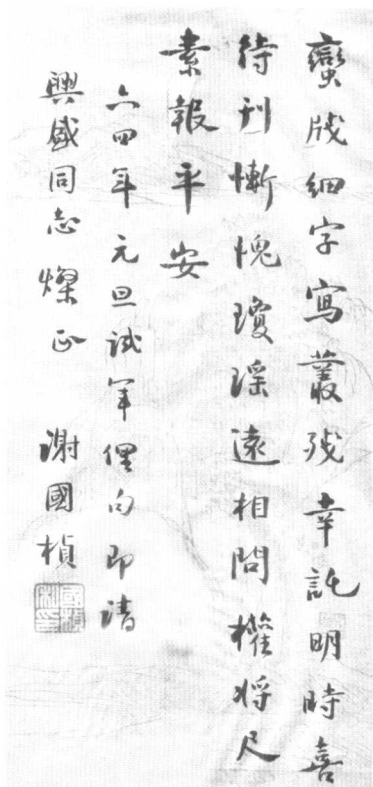 蠻牋細字寫叢殘幸託明時喜
待刊慚愧瓊瑤遠相問權將尺
素報平安
六四年元旦試筆俚句即請
興盛同志燦正 謝國楨